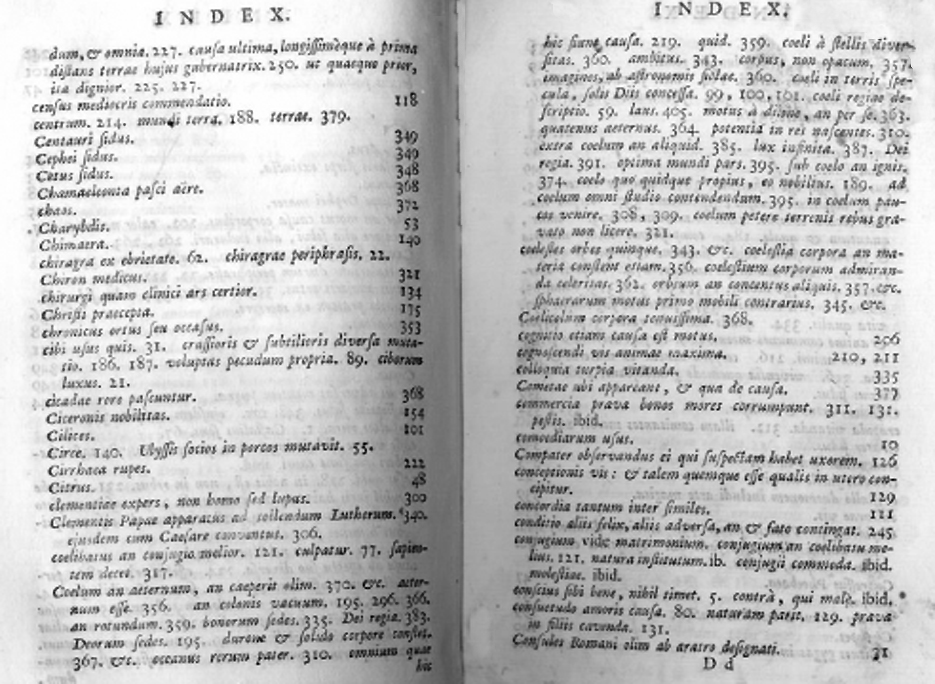 INDEX.
dum, & omnia. 227. causa ultima, longissimeque à prima
distans terrae hujus gubernatrix. 250. ut quaeque prior,
ita dignior. 225. 227.
census mediocris commendatio. 118
centrum. 214. mundi terra. 188. terrae. 379.
Centauri sidus. 349
Cephei sidus. 349
Cetus sidus. 348
Chamaeleonta pasci aëre. 368
chaos. 372
Charybdis. 53
Chimaera. 140
chiragra ex ebrietate. 62. chiragrae periphrasis. 22.
Chiron medicus. 321
chirurgi quam clinici ars certior. 134
Christi praecepta. 175
chronicus ortus seu occasus. 353
cibi usus quis. 31. crassioris & subtilioris diversa muta-
tio. 186. 187. voluptas pecudum propria. 89. ciborum
luxus. 21.
cicadae rore pascuntur. 368
Ciceronis nobilitas. 154
Cilices. 101
Circe. 140. Ulyssis socios in porcos mutavit. 55.
Cirrhaea rupes. 222
Citrus. 48
clementiae expers, non homo sed lupus. 300
Clementis Papae apparatus ad tollendum Lutherum. 340.
ejusdem cum Caesare conventus. 306.
coelibatus an conjugio melior. 121. culpatur. 77. sapien-
tem decet. 317.
Coelum an aeternum, an caeperit olim. 370. &c. aeter-
num esse. 356. an colonis vacuum. 195. 296. 366.
an rotundum. 359. bonorum sedes. 335. Dei regia. 383.
Deorum sedes. 195. durone & solido corpore constet.
367. &c. oceanus rerum pater. 310. omnium quae
hic
INDEX.
hic fiunt causa. 219. quid. 359. coeli à stellis diver-
sitas. 360. ambitus. 343. corpus, non opacum. 357.
imagines, ab astronomis fictae. 360. coeli in terris spe-
cula, solis Diis concessa. 99, 100, 101. coeli regine de-
scriptio. 59. laus. 405. motus à divino, an per se. 363.
quatenus aeternus. 364. potentia in res nascentes. 310.
extra coelum an aliquid. 385. lux infinita. 387. Dei
regia. 391. optima mundi pars. 395. sub coelo an ignis.
374. coelo quo quidque propius, eo nobilius. 189. ad
coelum omni studio contendendum. 395. in coelum pau-
cos venire. 308, 309. coelum petere terrenis rebus gra-
vato non licere. 321.
coelestes orbes quinque. 343. &c. coelestia corpora an ma-
teria constent etiam. 356. coelestium corporum admiran-
da celeritas. 362. orbium an concentus aliquis. 357. &c.
sphaerarum motus primo mobili contrarius. 345. &c.
Coelicolûm corpora tenuissima. 368.
cognitio etiam causa est motus. 296
cognoscendi vis animae maxima. 210, 211
colloquia turpia vitanda. 335
Cometae ubi appareant, & qua de causa. 377
commercia prava bonos mores corrumpunt. 311. 131.
pestis. ibid.
comoediarum usus. 10
Compater observandus ei qui suspectam habet uxorem. 126
conceptionis vis: & talem quemque esse qualis in utero con-
cipitur. 129
concordia tantum inter similes. 111
conditio aliis felix, aliis adversa, an & fato contingat. 245
conjugium vide matrimonium. conjugium an coelibatu me-
lius. 121. natura institutum. ib. conjugii commoda. ibid.
molestiae. ibid.
conscius sibi bene, nihil timet. 5. contrà, qui male. ibid.
consuetudo amoris causa. 80. naturam parit. 129. prava
in filiis cavenda. 131.
Consules Romani olim ab aratro designati. 31
D d